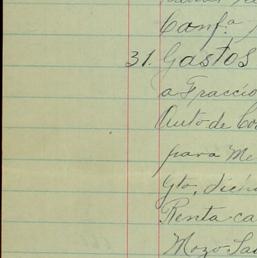 Conf.ª
31. Gastos
a Fraccio
Auto de Co
para Me
Gto, dich
Renta ca
Mozo, Sa